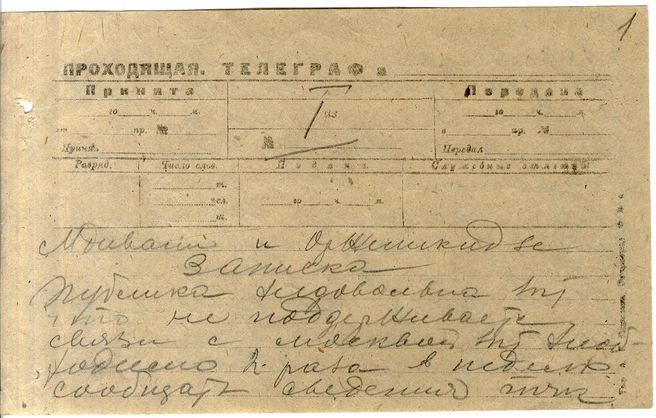 1
ПРОХОДЯЩАЯ. ТЕЛЕГРАФ в
Принята
Передана
го ч. м.
из
го ч. м.
от пр. №
№ I
в пр. №
Принял
Передал
Разряд.
Число слов.
Подана
Служебные отметки
т.
сл.
го ч. м.
т.
Мдивани и Орженикидзе
Записка
Публика недовольна зпт
что не поддерживаете
связи с москвой зпт необ-
ходимо 2 раза в неделю
сообщать сведения тчк